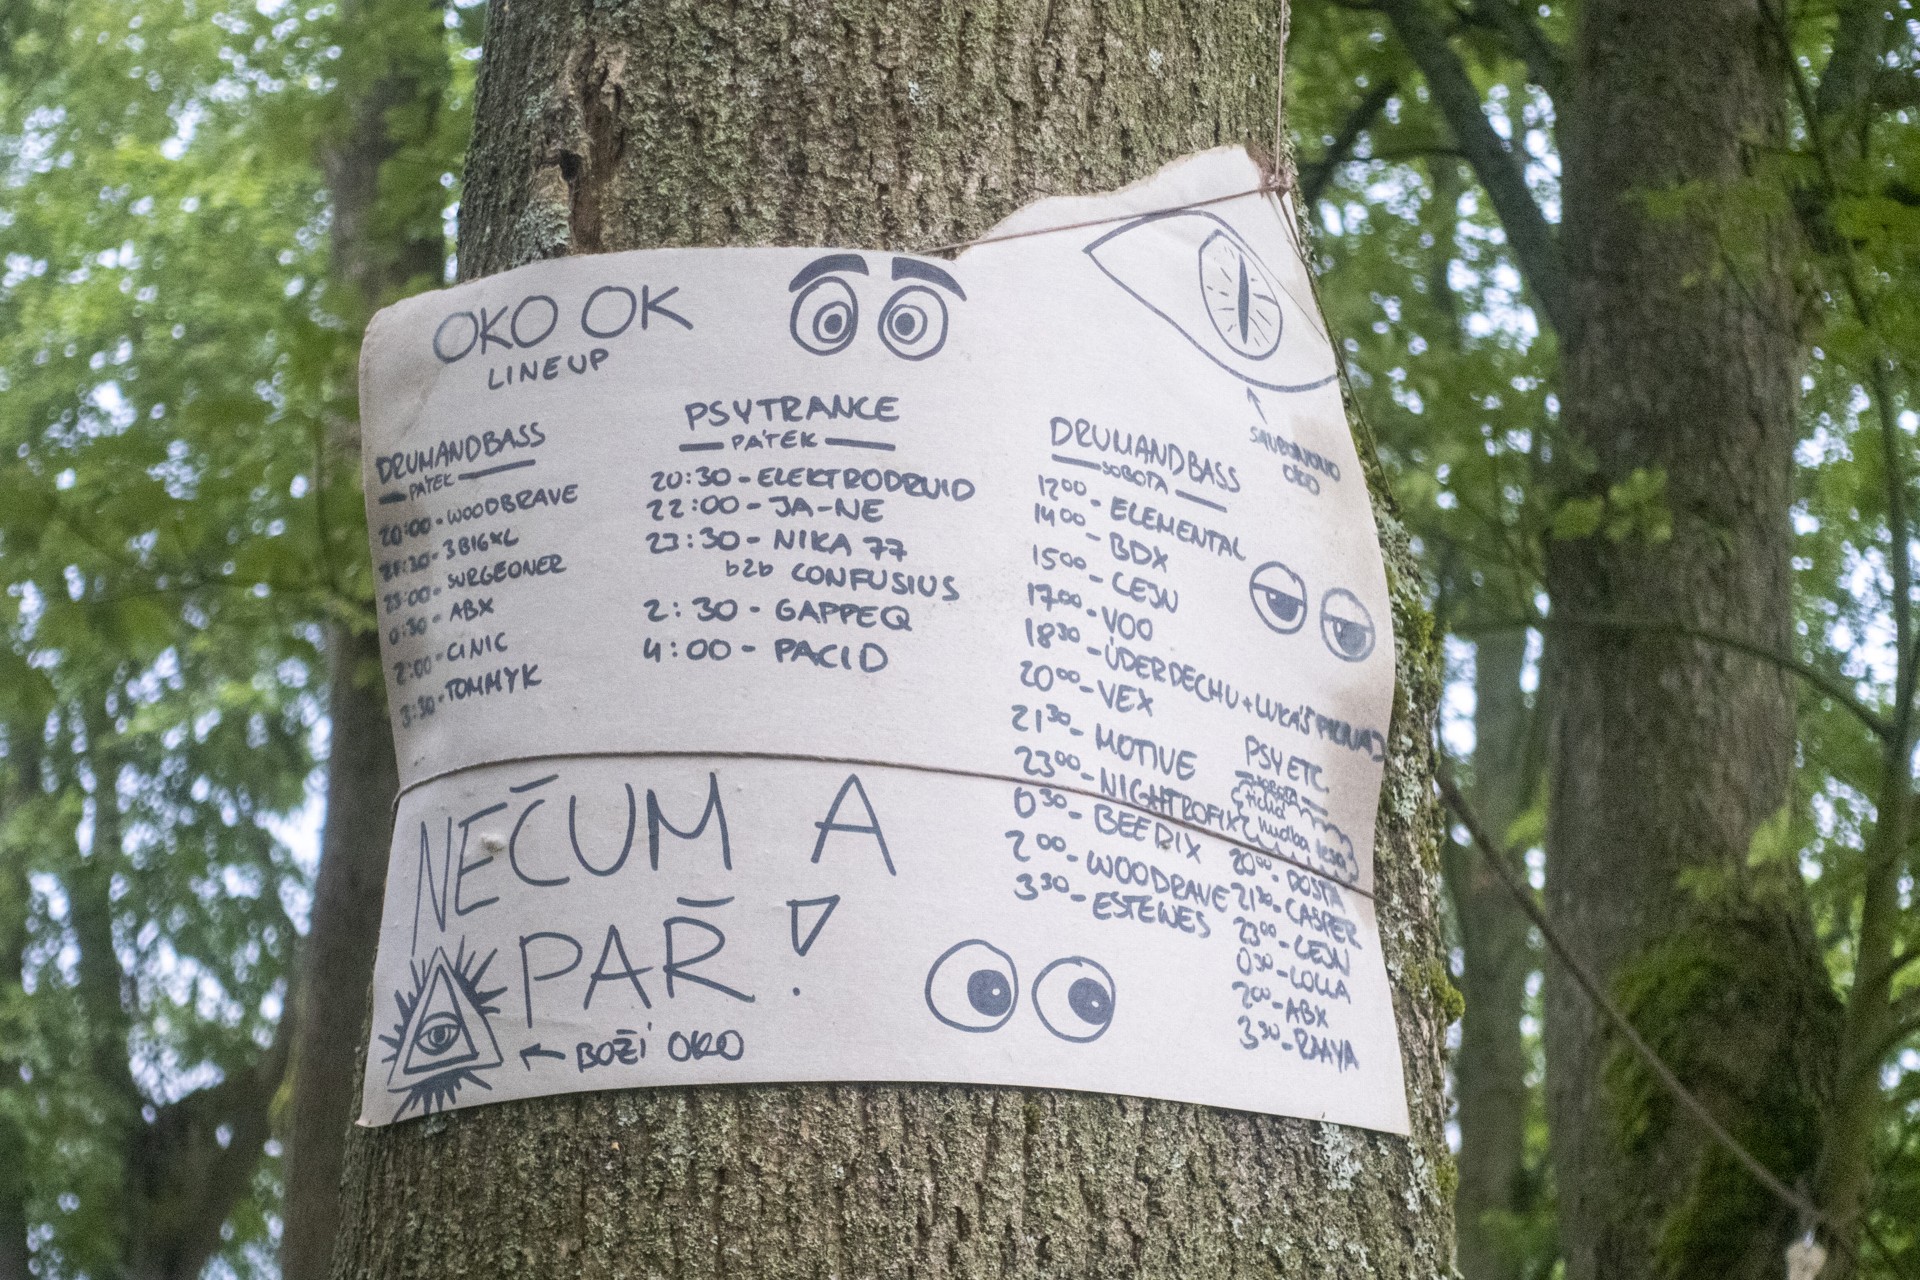 OKO OK
LINEUP
DRUMANDBASS
PÁTEK
20:00 - WOODBRAVE
21:30 - 3BIGXL
23:00 - SURGEONER
0:30 - ABX
2:00 - CINIC
3:30 - TOMMYK
PSYTRANCE
PÁTEK
20:30 - ELEKTRODRUID
22:00 - JA-NE
23:30 - NIKA 77
b2b CONFUSIUS
2:30 - GAPPEQ
4:00 - PACID
SAURONOVO
OKO
DRUMANDBASS
SOBOTA
1200 - ELEMENTAL
1400 - BDX
1500 - CEJN
1700 - VOO
1830 - ÚDERDECHU + LUKÁŠ
2000 - VEX
2130 - MOTIVE
2300 - NIGHTROFIX
030 - BEERIX
200 - WOODRAVE
330 - ESTEWES
PSY ETC.
SOBOTA
tichá
hudba lesa
2000 - DOSTA
2130 - CASPER
2300 - CEJN
030 - LOLLA
200 - ABX
330 - RAAYA
NEČUM A
PAŘ!
BOŽÍ OKO